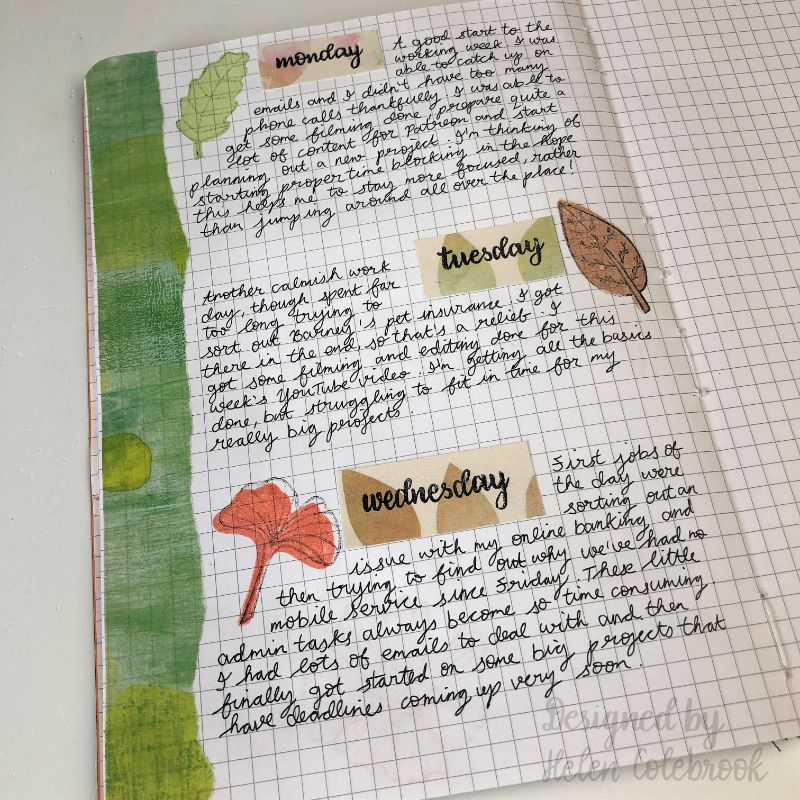 monday
A good start to the
working week. I was
able to catch up on
emails and I didn't have too many
phone calls thankfully. I was able to
get some filming done, prepare quite a
lot of content for Patreon and start
planning out a new project. I'm thinking of
starting proper time blocking in the hope
this helps me to stay more focused, rather
than jumping around all over the place!
tuesday
Another calmish work
day, though spent far
too long trying to
sort out Barney's pet insurance. I got
there in the end, so that's a relief. I
got some filming and editing done for this
week's YouTube video. I'm getting all the basics
done, but struggling to fit in time for my
really big projects.
wednesday
First jobs of
the day were
sorting out an
issue with my online banking and
then trying to find out why we've had no
mobile service since Friday. These little
admin tasks always become so time consuming.
I had lots of emails to deal with and then
finally got started on some big projects that
have deadlines coming up very soon.
Designed by
Helen Colebrook